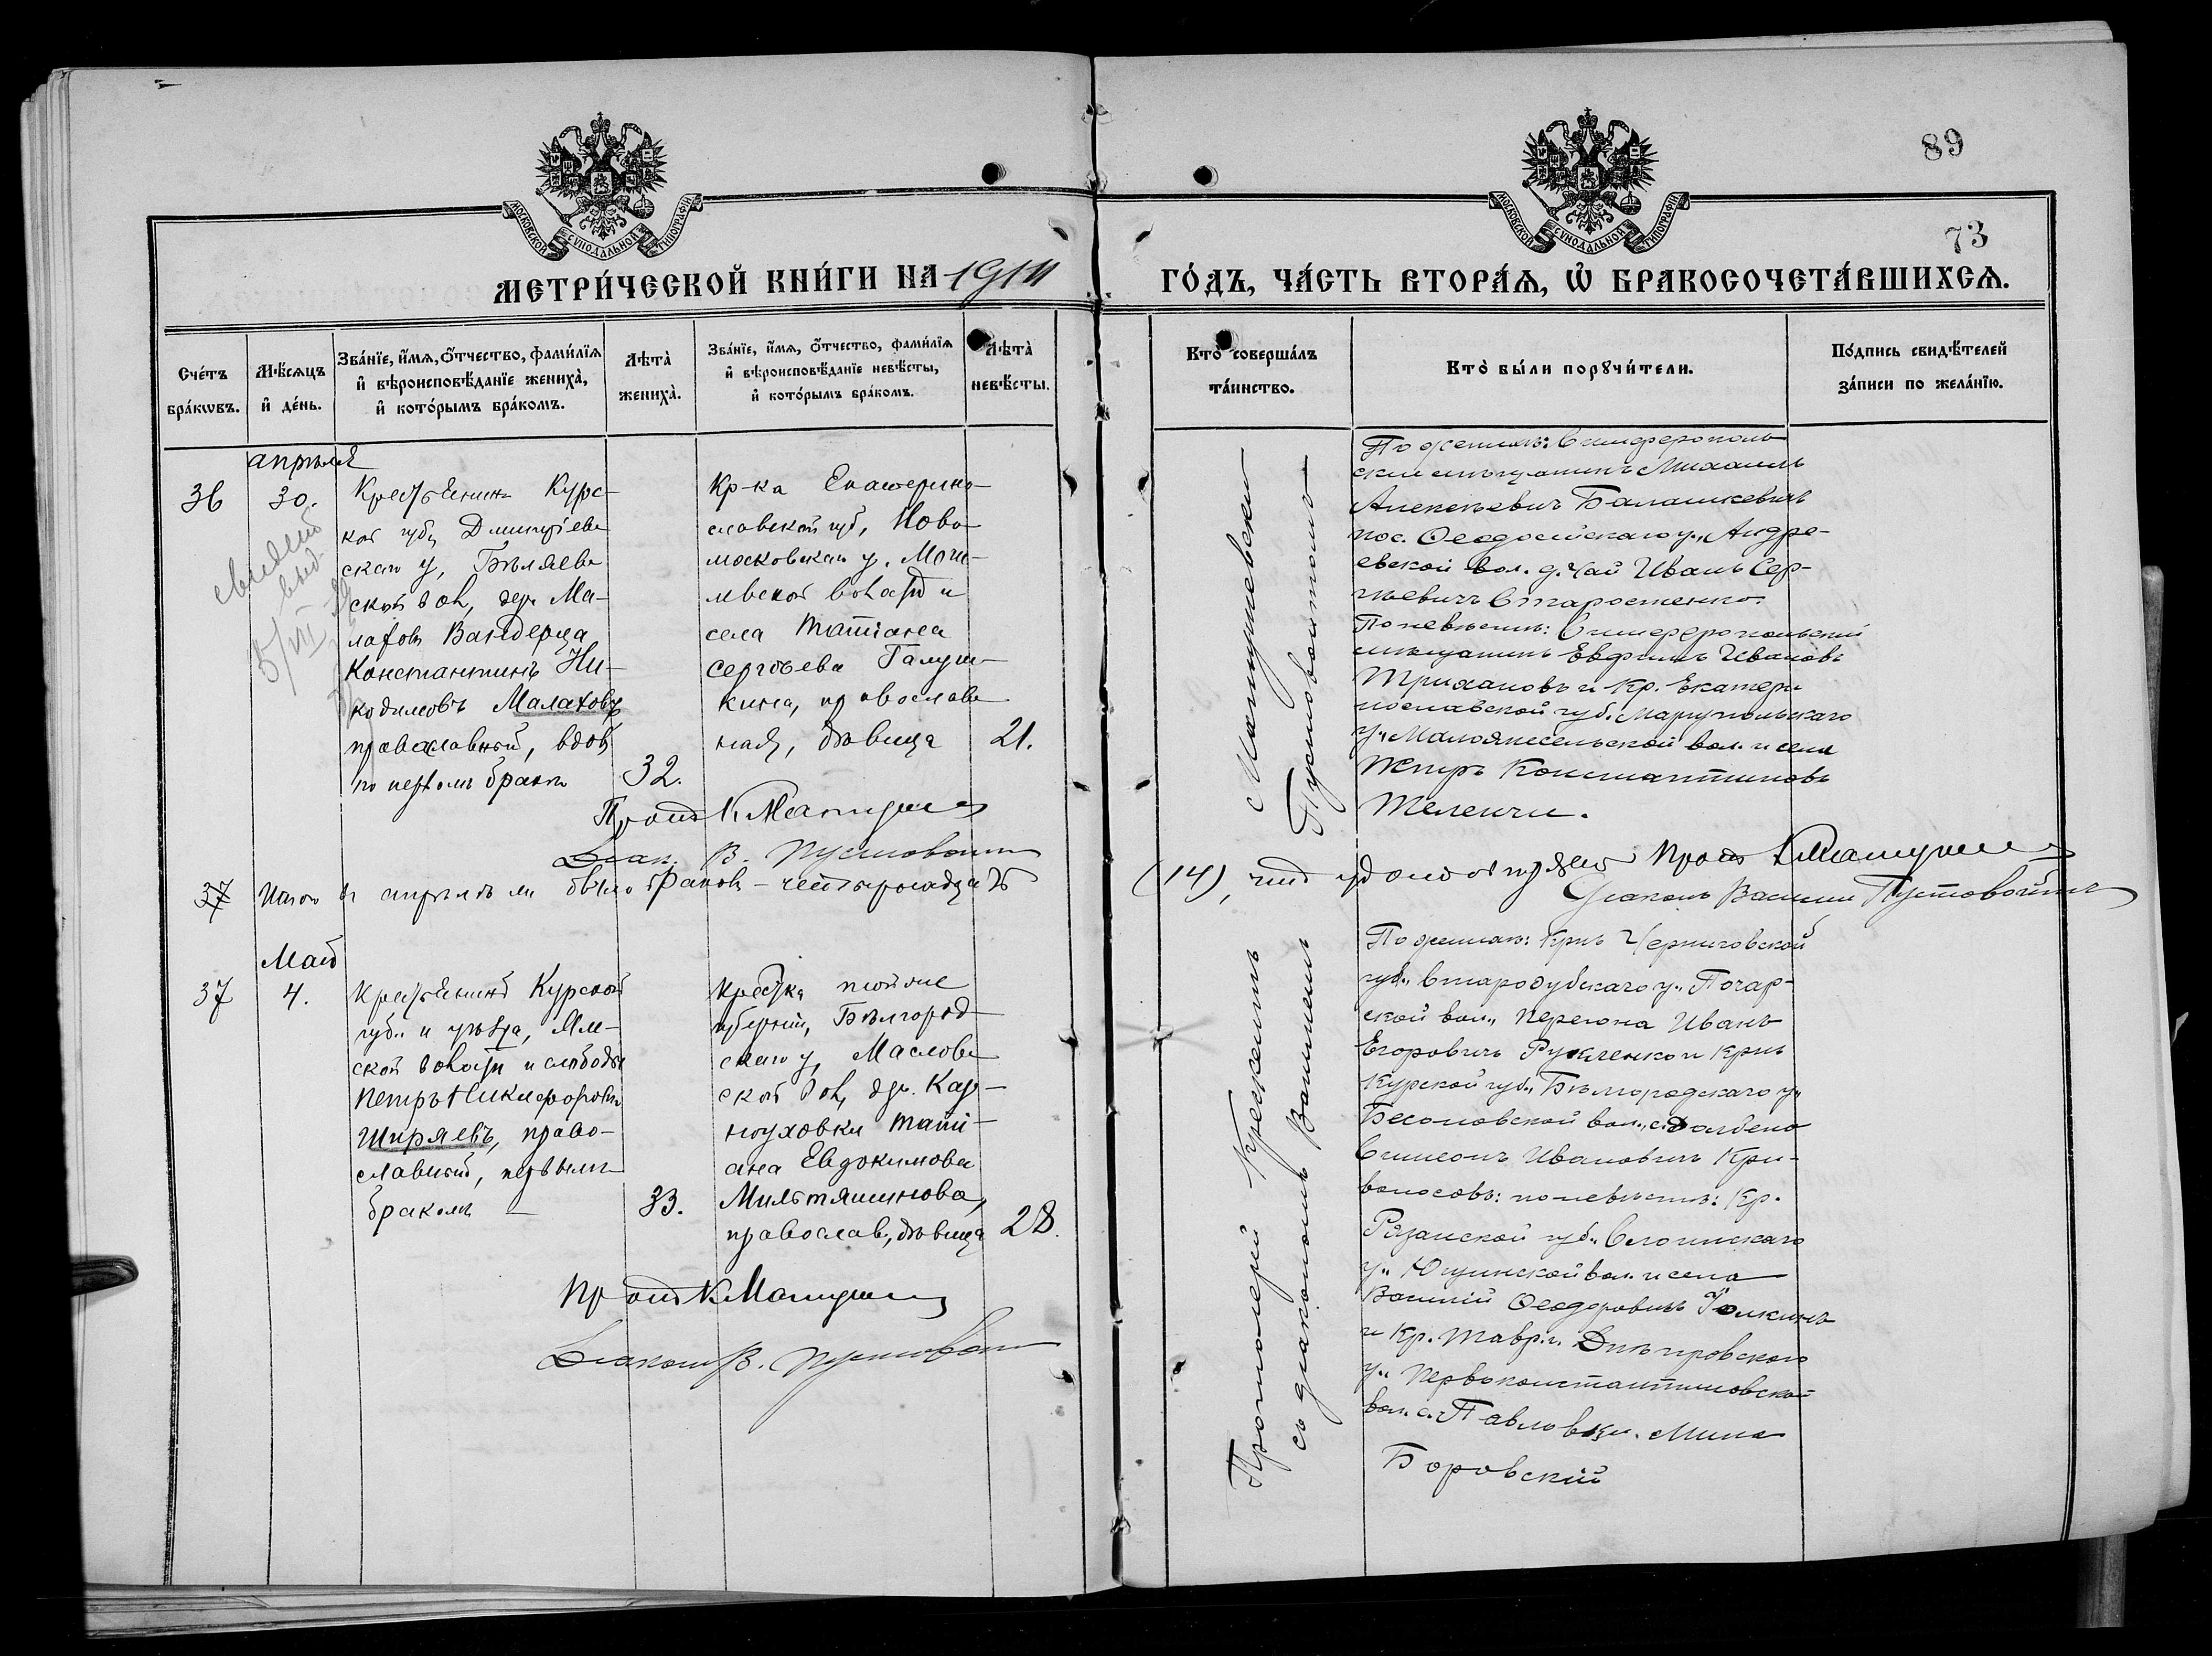 89
73
МОСКОВСКОЙ СѴНОДАЛЬНОЙ ТИПОГРАФІИ
МОСКОВСКОЙ СѴНОДАЛЬНОЙ ТИПОГРАФІИ
МЕТРИ́ЧЕСКОЙ КНИ́ГИ НА 1911
ГО́ДЪ, ЧА́СТЬ ВТОРА́Ѧ, Ѽ БРАКОСОЧЕТА́ВШИХСѦ.
Сче́тъ бра́кѡвъ.
Мѣ́сѧцъ и҆ де́нь.
Зва́нїе, и҆́мѧ, ѻ҆́тчество, фами́лїѧ и҆ вѣроисповѣ́данїе жениха̀, и҆ кото́рымъ бра́комъ.
Лѣта̀ жениха̀.
Зва́нїе, и҆́мѧ, ѻ҆́тчество, фами́лїѧ и҆ вѣроисповѣ́данїе невѣ́сты, и҆ кото́рымъ бра́комъ.
Лѣта̀ невѣ́сты.
Кто̀ соверша́лъ та́инство.
Кто̀ бы́ли порꙋчи́тели.
По́дпись свидѣ́телей за́писи по жела́нїю.
апрѣля
36
30.
Крестьянинъ Курс-
кой губ, Дмитріев-
скаго у, Бѣляев-
ской вол, дер Ма-
лахов
Константинъ Ни-
кодимовъ Малаховъ
православный, вдов
по первомъ бракѣ
32.
Кр-ка Екатерино-
славской губ, Ново-
московскаго у. Моги-
левской волости и
села Татіана
Сергѣева Галуш-
кина, православ-
ная, дѣвица
21.
Прот К. Матушев
Діак. В. Пустовойт
Матушевскій
Пустовойтомъ
По женихѣ: Симферополь-
скій мѣщанинъ Михаилъ
Алексѣевичъ Балашкевичъ
пос. Ѳеодосійскаго у., Андре-
евской вол. д. Чай Иванъ Сер-
гѣевичъ Старостенко.
По невѣстѣ: Симферопольскій
мѣщанинъ Евфимъ Ивановъ
Трихановъ и Кр. Екатери-
нославской губ. Маріупольскаго
у., Малоянисельской вол. и села
Петръ Константиновъ
Теленчи.
37
Итого въ апрѣлѣ м было браковъ - четырнадцать
(14), Прот К Матушев
Діаконъ Василій Пустовойтъ
Май
37
4.
Крестьянинъ Курской
губ. и уѣзда, Ям-
ской волости и слободы
Петръ Никифоровъ
Ширяевъ, право-
славный, первымъ
бракомъ
33.
Крестка той же
губерніи, Бѣлгород-
скаго у, Маслов-
ской вол, дер. Кар-
ноуховки Таті-
ана Евдокимова
Мильтяшинова,
православ, дѣвица
28.
Прот К. Матушев
Діаконъ В. Пустовойт
Протоіерей
съ діакономъ Василіемъ
По женихѣ: Крнъ Черниговской
губ., Стародубскаго у., Почар-
ской вол., Перегона Иванъ
Егоровичъ Рукленко и Крнъ
Курской губ., Бѣлгородскаго у.,
Бесоновской вол., с. Долбено
Симеонъ Ивановичъ Кри-
волосовъ: по невѣстѣ: Кр.
Рязанской губ.
вол. и села
Василій Ѳеодоровичъ
и Кр. Тавр. г. Днѣпровскаго
у., Первоконстантиновской
вол. с. Павловки. Мина
Боровскій